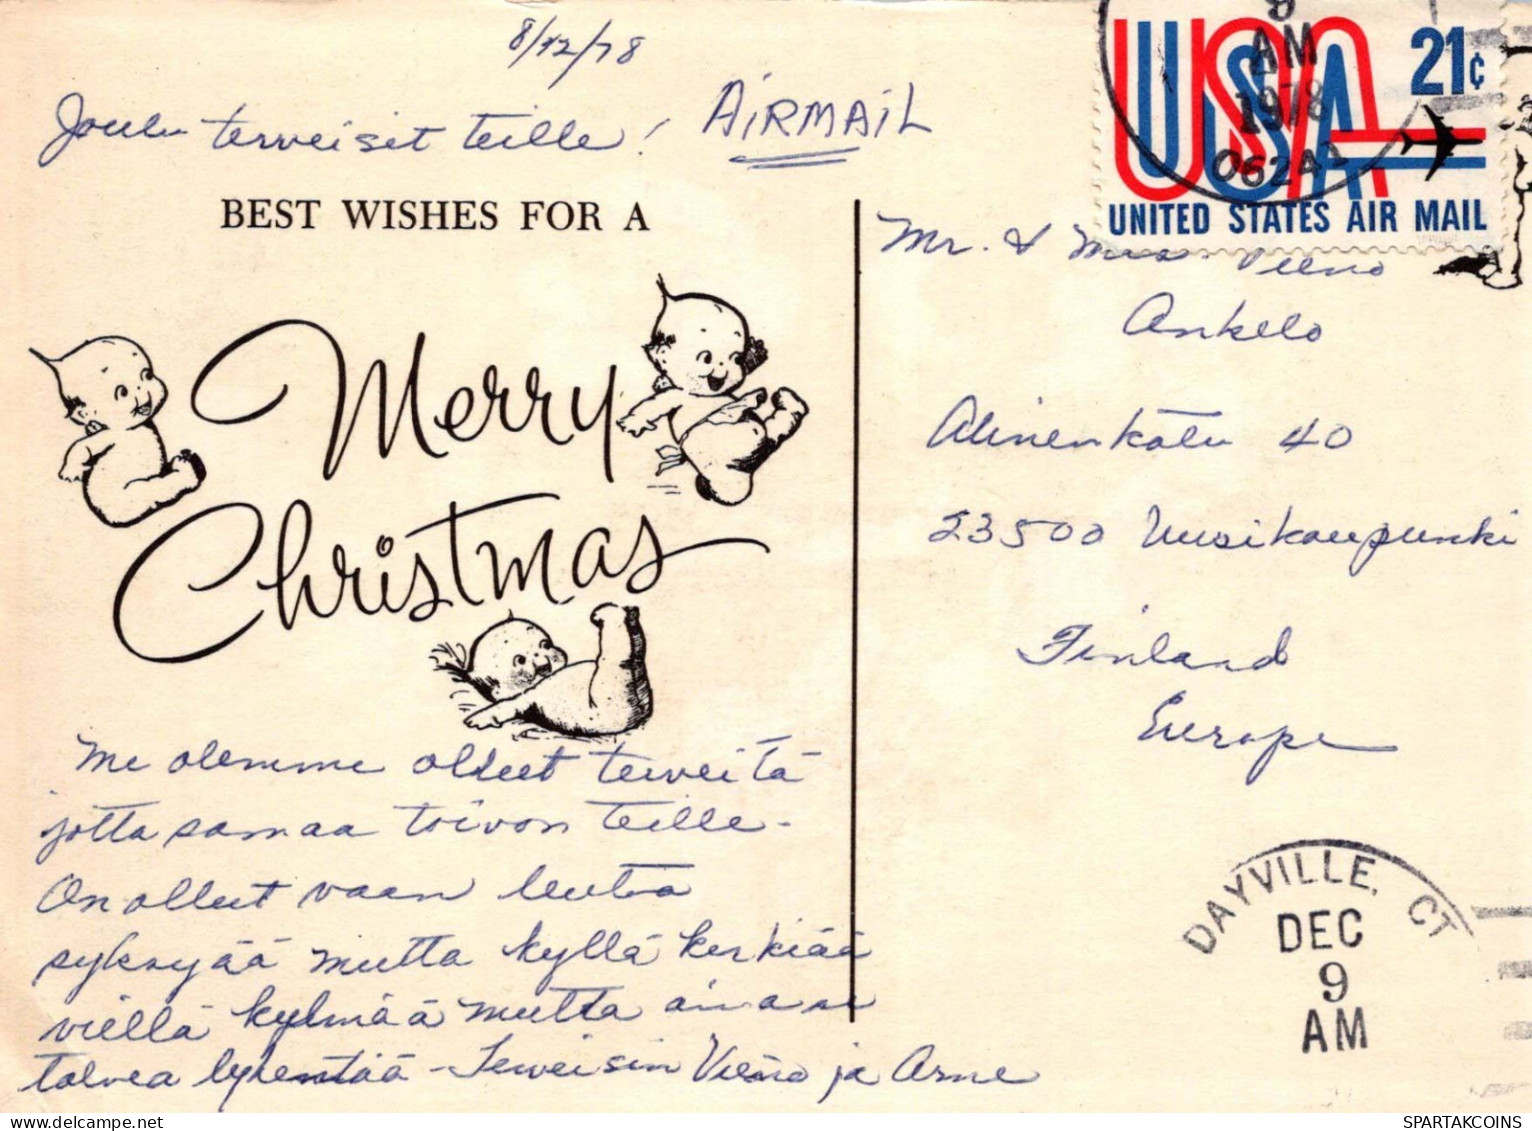 8/12/78
Joulu terveiset teille!
AIRMAIL
9
AM
1978
06241
USA 21¢
UNITED STATES AIR MAIL
BEST WISHES FOR A
Merry
Christmas
Me olemme olleet terveitä
jotta samaa toivon teille -
On ollut vaan leutoa
syksyää mutta kyllä kerkiää
viellä kylmää mutta aina se
talvea lyhentää - Terveisin Vieno ja Arne
Mr. & Mrs. Veeno
Ankelo
Alinenkatu 40
23500 Uusikaupunki
Finland
Europe
DAYVILLE, CT
DEC
9
AM
SPARTAKCOINS